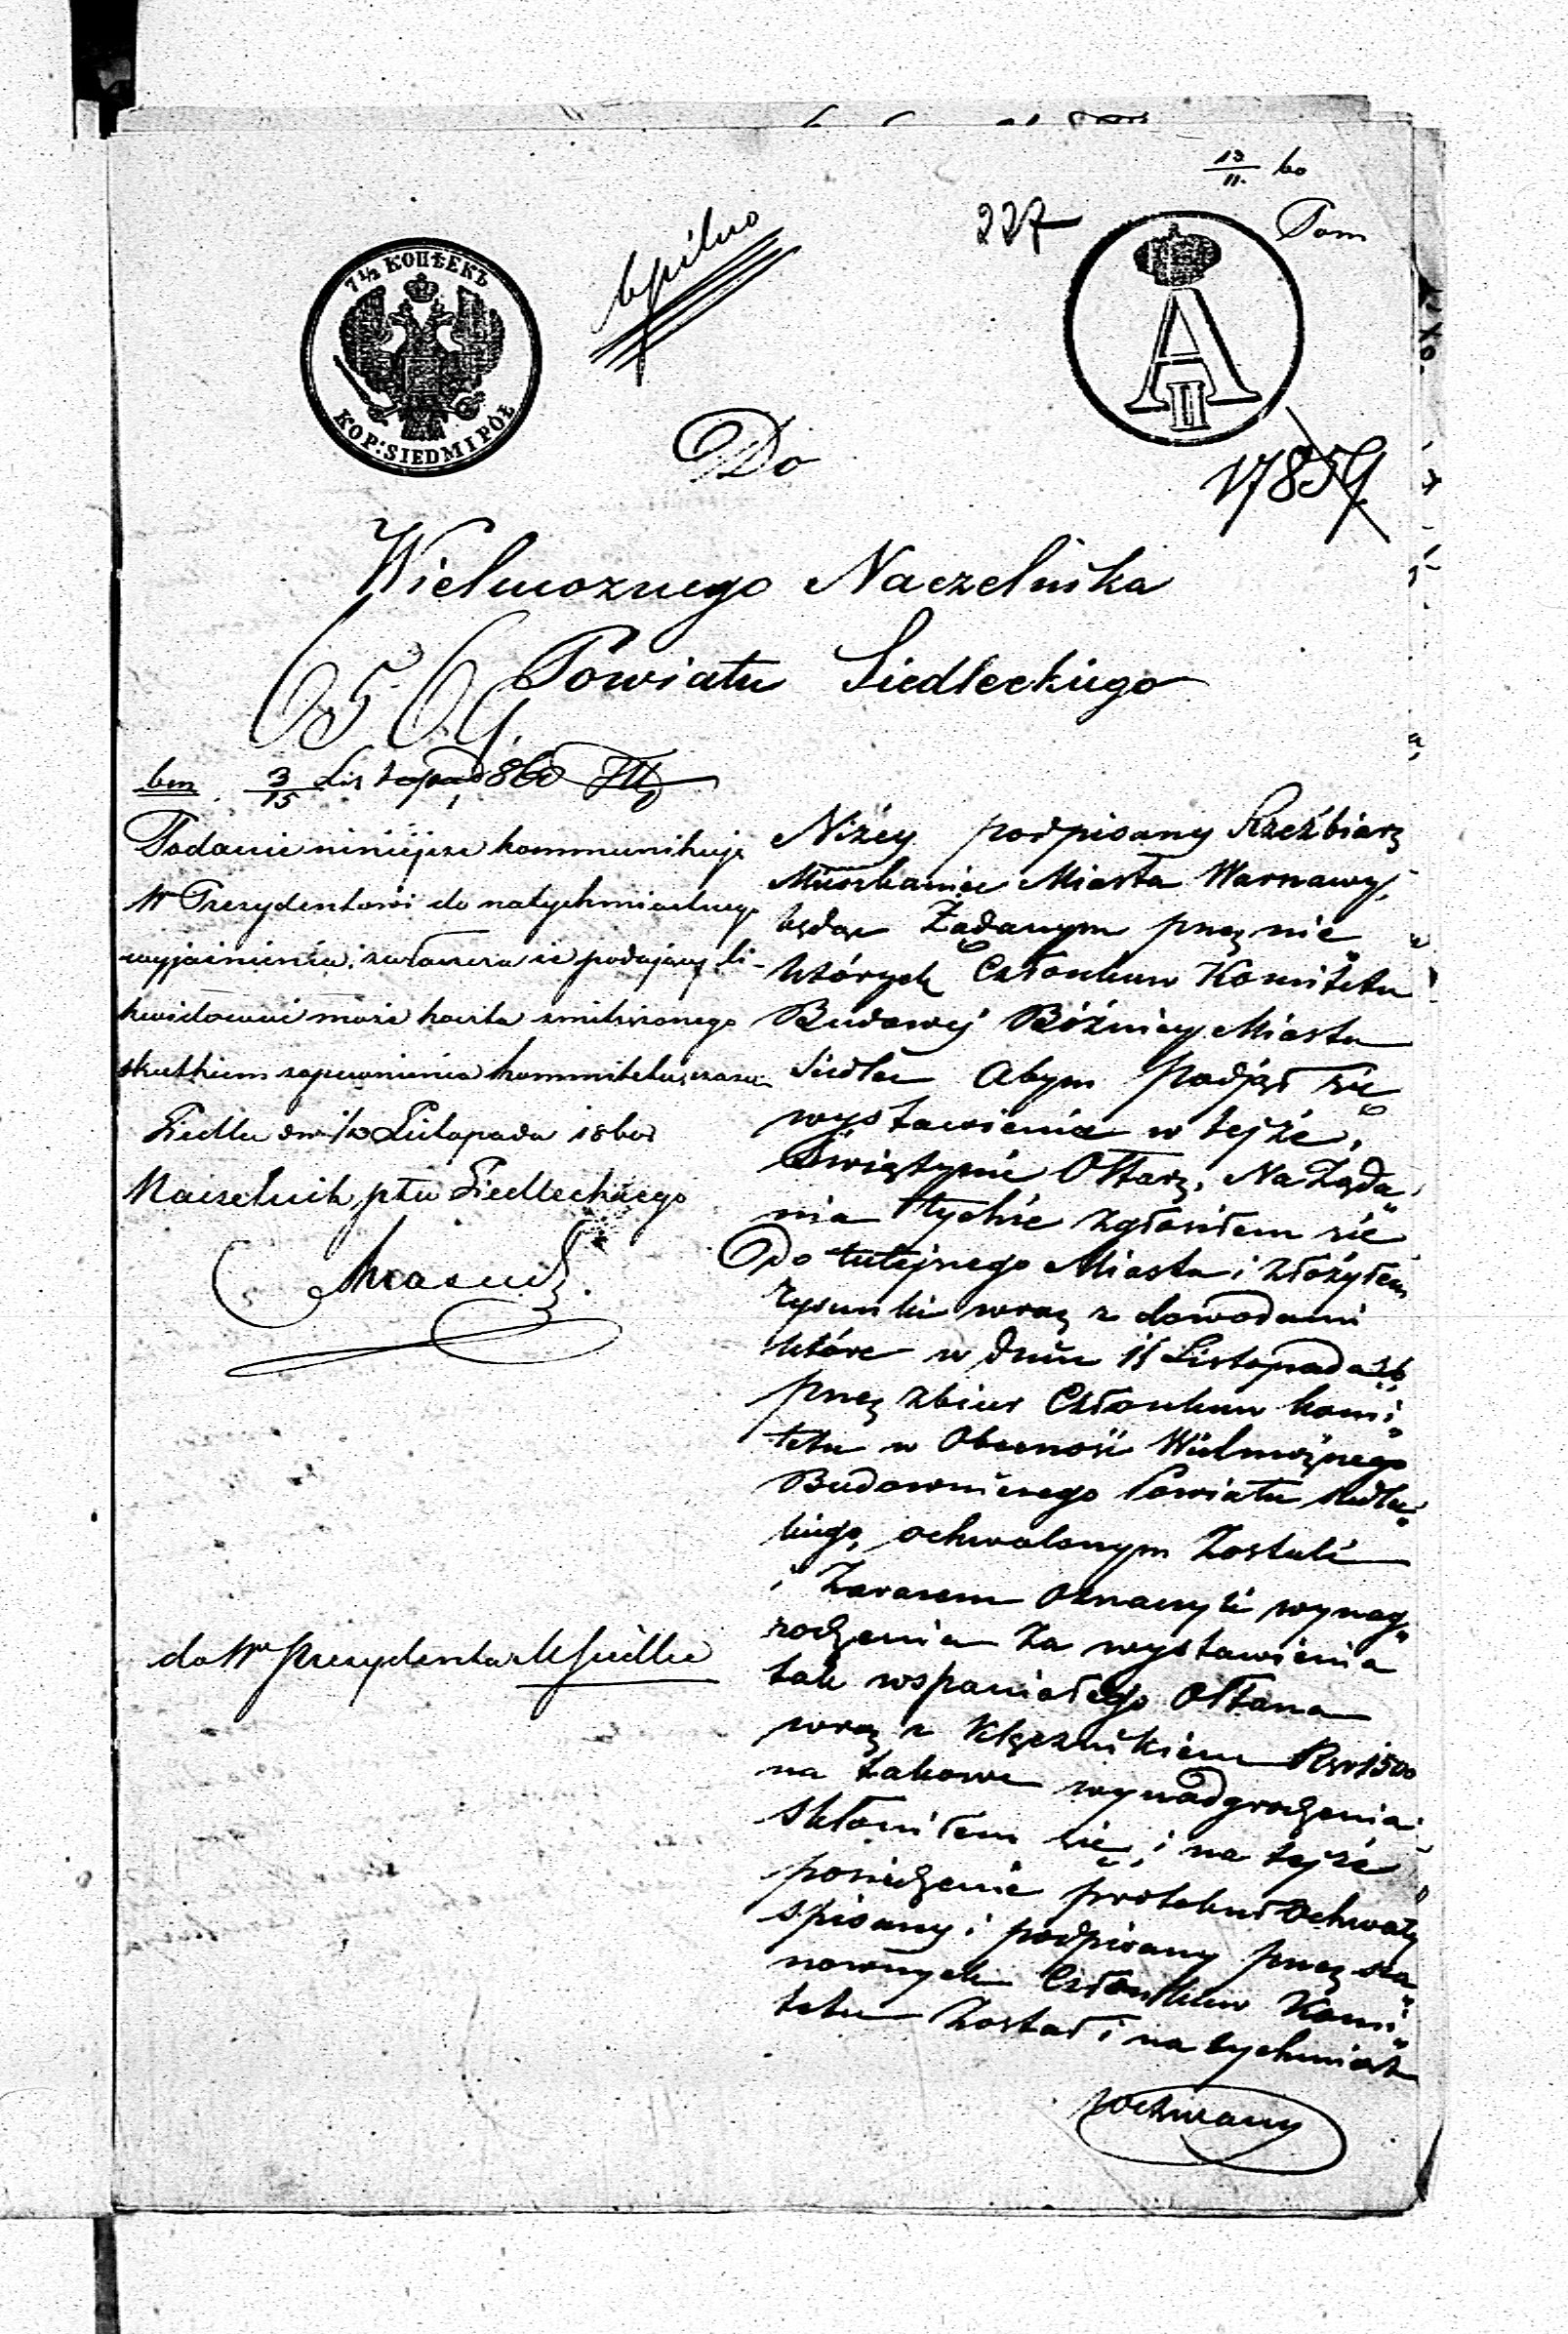 13/11. 60
Pom
227
pilno
7½ КОПѢЕКЪ
KOP: SIEDMIPÓŁ
A
II
17859
Do
Wielmoznego Naczelnika
Powiatu Siedleckiego
6569
3/15 Listopad 860
Podanie niniejsze kommunikuje
W Prezydentowi do natychmiastnego
wyjaśnienia, zwłaszcza ie podający li-
kwidować może koszta zmitrzonego
skutkiem zapewnienia kommitetu, czasu
Siedlce dn 1/13 Listopada 1860 r
Naczelnik ptu Siedleckiego
do Wo Prezydenta M Siedlce
Niżey podpisany Rzeźbiarz
Mieszkaniec Miasta Warszawy,
będąc Żądanym przez nie„
których Członkuw Komitetu
Budowej Bóźnicy Miasta
Siedlec abym podjął się
wystawienia w tejże,
Świątynie Ołtarz, Na Żąda„
nia tychże zgłosiłem sie
Do tutejszego Miasta i złożyłem
rysunki wraz z dowodami
które w dniu 11 Listopada
przez zbiur Członkuw komi„
tetu w Obecność Wielmożnego
Budowniczego Powiatu siedlec„
kiego, ochwalonym Zostali
i Zarazem Oznaczyli wynag„
rodzenia Za wystawienia
tak wspaniałego Ołtarza
wraz z Klęcznikiem Rsr 1500
na takowe wynadgrodzenia
skłoniłem się, i na tejże
posiedzenie protokuł Ochwały
spisany i podpisany przez sza„
nownych Członkuw Komi„
tetu Został i na tychmiast